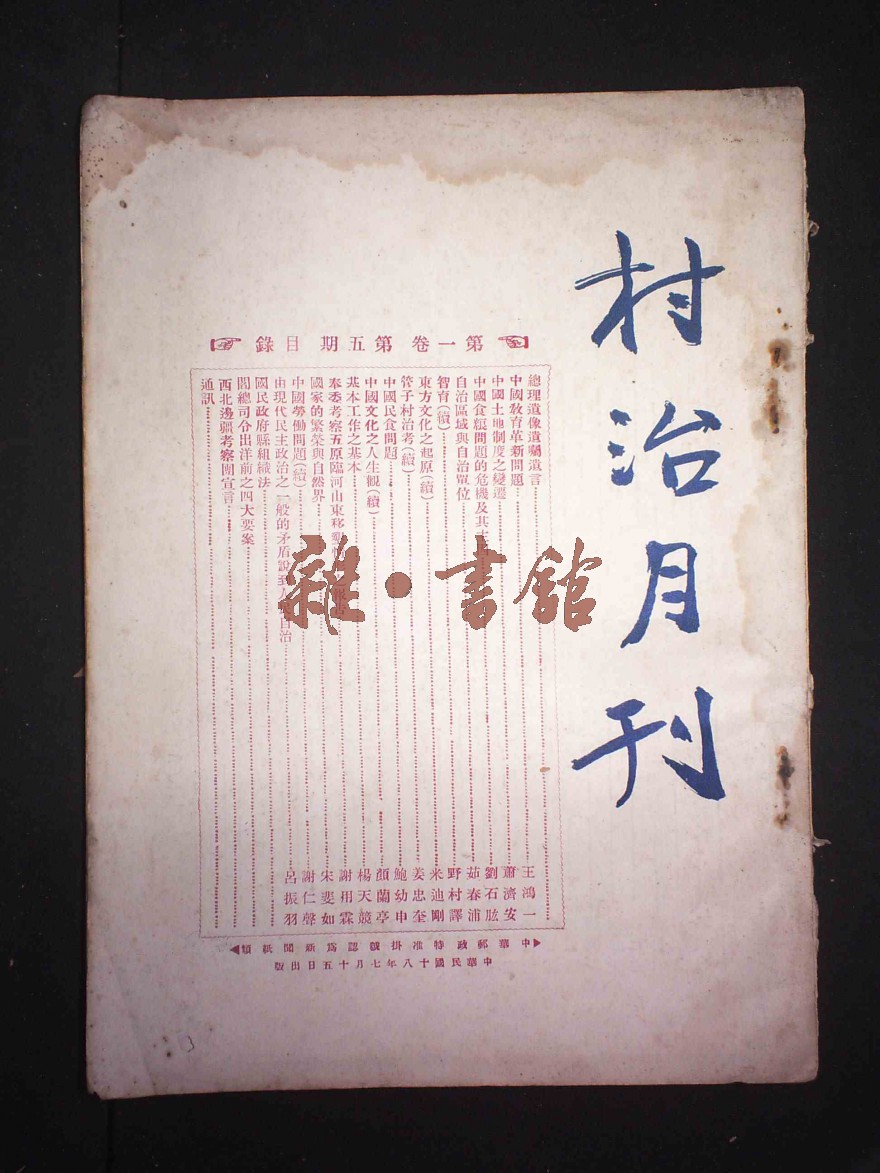 村治月刊
第一卷 第五期 目錄
總理遺像遺囑遺言
中國教育革新問題 王鴻一
中國土地制度之變遷 蕭濟安
中國食糧問題的危機及其 劉石肱
自治區域與自治單位 茹春浦
智育(續) 野村譯
東方文化之起原(續) 米迪剛
管子村治考(續) 姜忠奎
中國民食問題 鮑幼申
中國文化之人生觀(續) 顏蘭亭
基本工作之基本 楊天競
奉委考察五原臨河山東移墾 謝用霖
國家的繁榮與自然界 宋斐如
中國勞働問題(續) 謝仁聲
由現代民主政治之一般的矛盾說到人民自治 呂振羽
國民政府縣組織法
閻總司令出洋前之四大要案
西北邊疆考察團宣言
通訊
中華郵政特准掛號認爲新聞紙類
中華民國十八年七月十五日出版
雜·書館
3